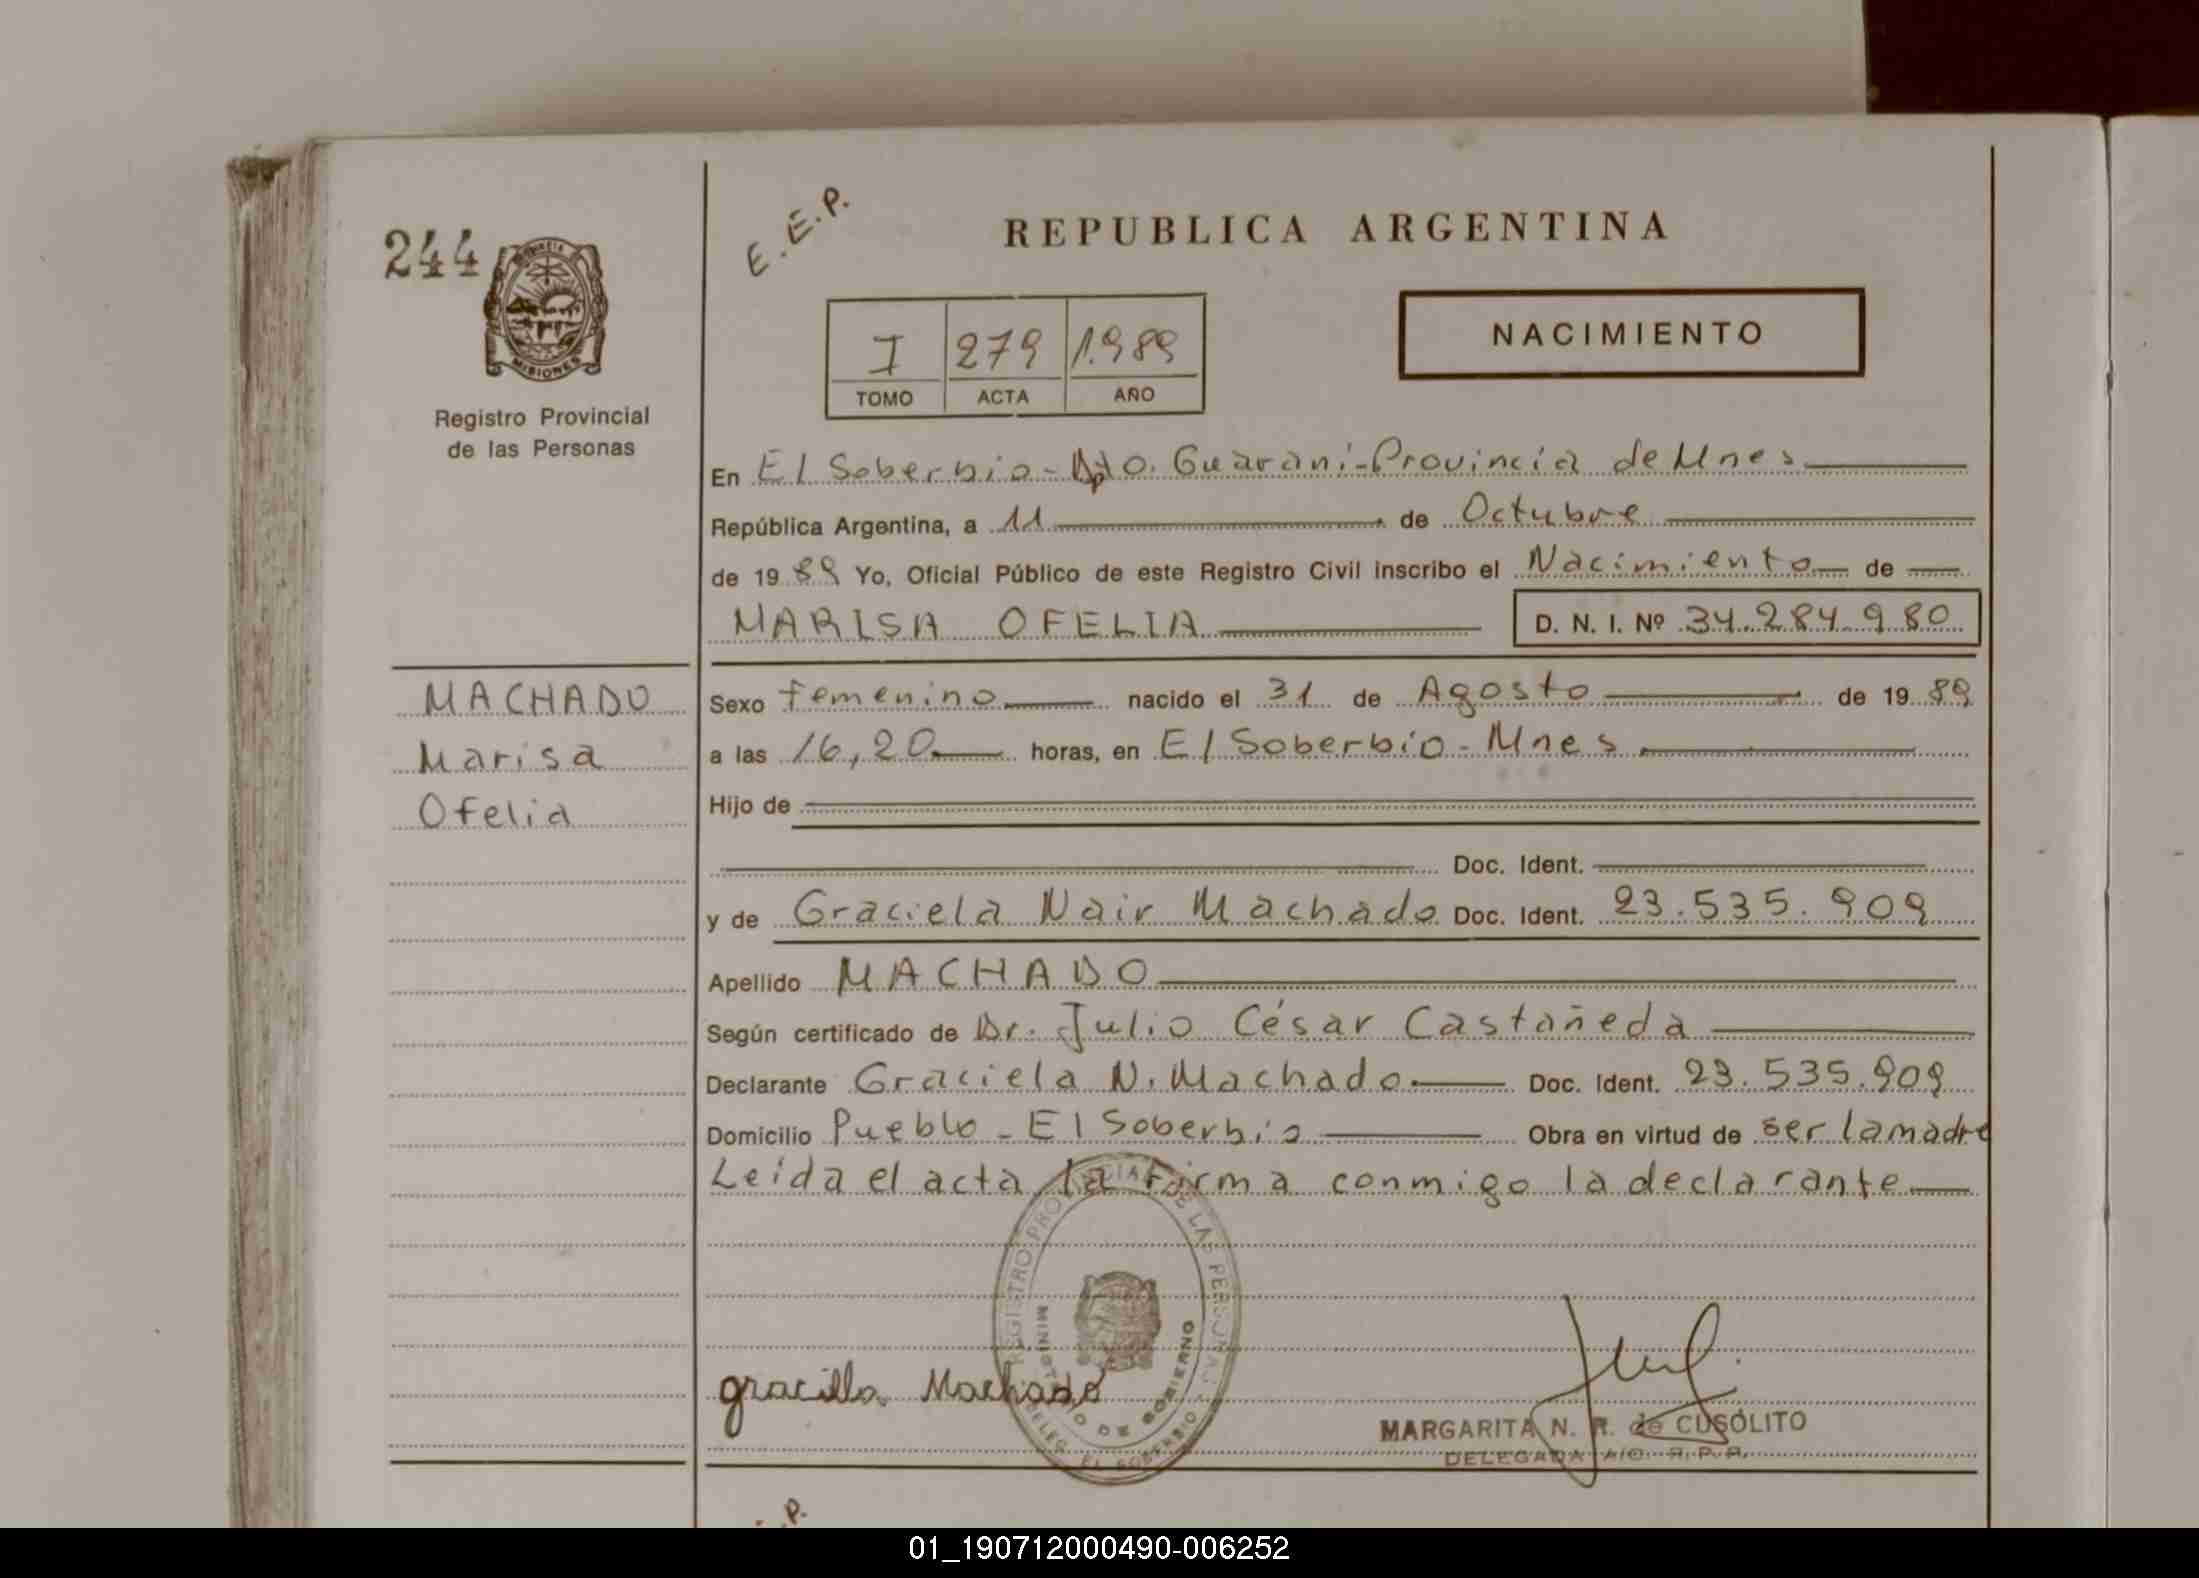 E.E.P.
REPUBLICA ARGENTINA
244
MISIONES
Registro Provincial
de las Personas
I 279 1.989
TOMO ACTA AÑO
NACIMIENTO
En El Soberbio - Dpto. Guaraní - Provincia de Mnes
República Argentina, a 11 de Octubre
de 19 89 Yo, Oficial Público de este Registro Civil inscribo el Nacimiento de
MARISA OFELIA D. N. I. Nº 34.284.980
MACHADO
Marisa
Ofelia
Sexo femenino nacido el 31 de Agosto de 19 89
a las 16,20 horas, en El Soberbio - Mnes
Hijo de
Doc. Ident.
y de Graciela Nair Machado Doc. Ident. 23.535.909
Apellido MACHADO
Según certificado de Dr. Julio César Castañeda
Declarante Graciela N. Machado Doc. Ident. 23.535.909
Domicilio Pueblo - El Soberbio Obra en virtud de ser la madre
Leída el acta la firma conmigo la declarante
REGISTRO PROVINCIAL DE LAS PERSONAS
MINISTERIO DE GOBIERNO
DELEG. EL SOBERBIO
gracilla Machado
MARGARITA N. R. de CUSOLITO
DELEGADA A/C. R. P. P.
.P.
01_190712000490-006252